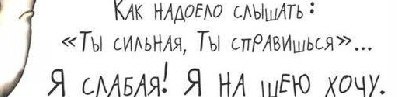 Как надоело слышать:
«Ты сильная, Ты справишься»...
Я слабая! Я на шею хочу.